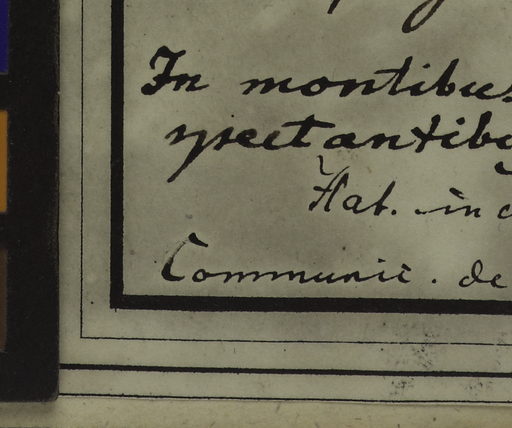 In montibus
spectantibus
Hab. in
Communic. de